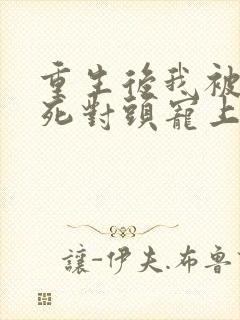 重生後我被
死對頭寵上
讓-伊夫.布魯